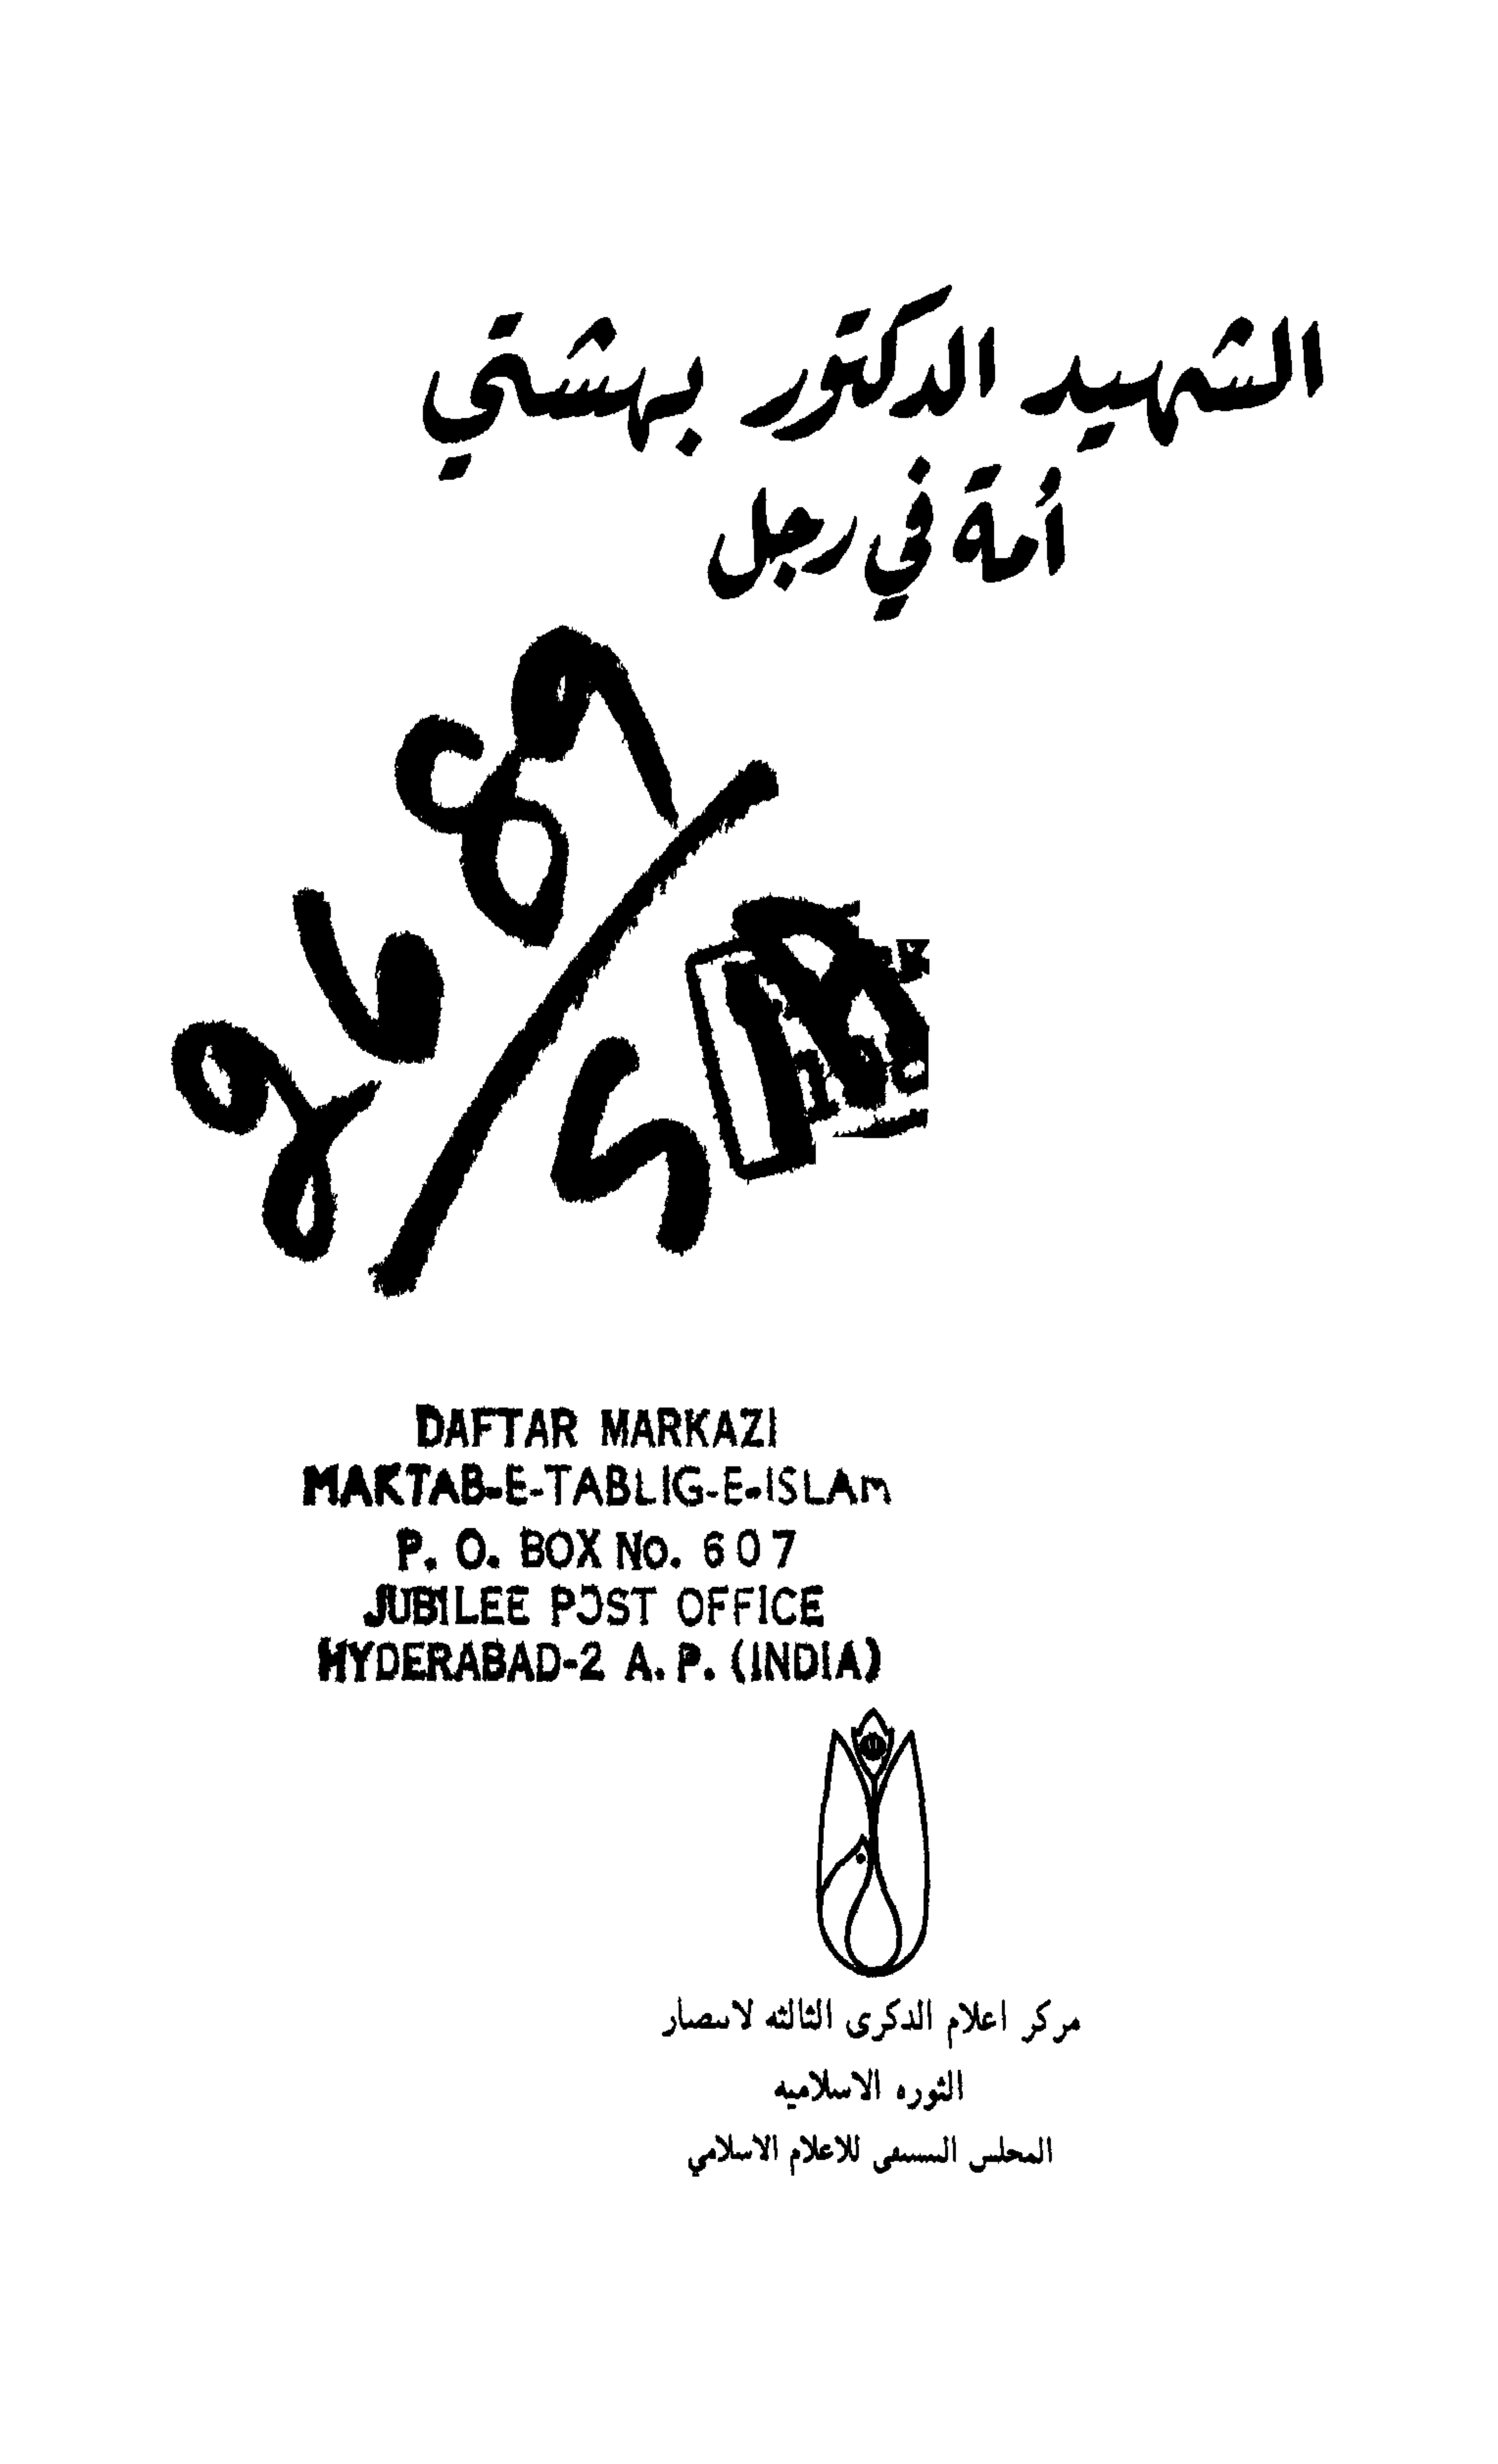 الشهيد الدكتور بهشتي
أمة في رجل
DAFTAR MARKAZI
MAKTAB-E-TABLIG-E-ISLAM
P. O. BOX NO. 607
JUBILEE POST OFFICE
HYDERABAD-2 A. P. (INDIA)
مركز اعلام الذكرى الثالثه لانتصار
الثوره الاسلاميه
المجلس التنسيقي للاعلام الاسلامي